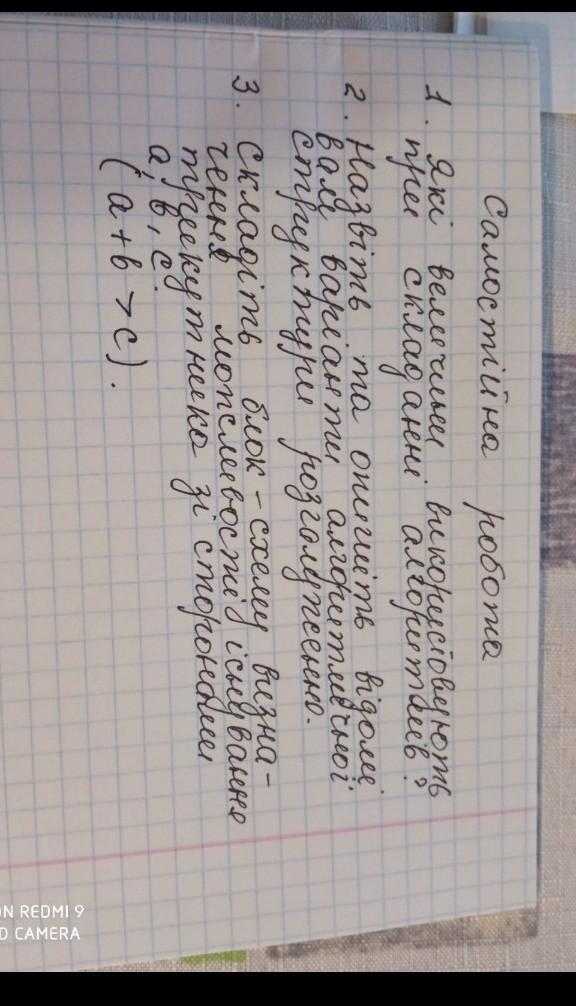 Самостійна робота
1. Які величини використовують
при складанні алгоритмів?
2. Назвіть та опишіть відомі
вам варіанти алгоритмічної
структури розгалуження.
3. Складіть блок-схему визна-
чення можливості існування
трикутника зі сторонами
a, b, c.
(a+b>c).
ON REDMI 9
D CAMERA